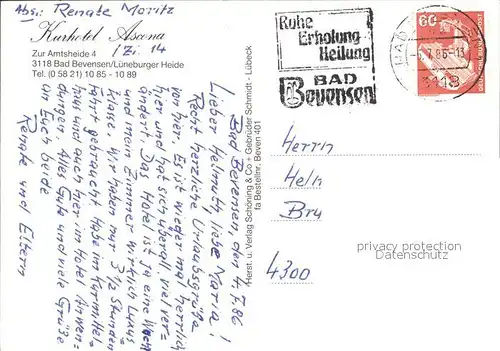 Abs.: Renate Moritz
Kurhotel Ascona
Zur Amtsheide 4 / Zi. 14
3118 Bad Bevensen/Lüneburger Heide
Tel. (0 58 21) 10 85 - 10 89
Bad Bevensen, den 4.7.86
Lieber Helmuth, liebe Maria!
Recht herzliche Urlaubsgrüße
von hier. Es ist wieder mal herrlich
hier und hat sich überall viel ver=
ändert. Das Hotel ist ja eine Wucht
und mein Zimmer wirklich Luxus
klasse. Wir haben nur 3½ Stunden
Fahrt gebraucht. Habe im Kurmittel
haus und auch hier im Hotel Anwen=
dungen. Alles Gute und viele Grüße
an Euch beide
Renate und Eltern
Herst. u. Verlag Schöning & Co + Gebrüder Schmidt · Lübeck
fa Bestellnr. Beven 401
Ruhe
Erholung
Heilung
BAD
Bevensen
60
3118
Herrn
Helm
Bru
4300
privacy protection
Datenschutz